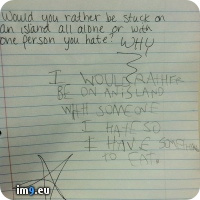 Would you rather be stuck on
an island all alone or with
one person you hate? WHY
I WOULD RATHER
BE ON AN ISLAND
WITH SOMEONE
I HATE SO
I HAVE SOMETHING
TO EAT.
im9.eu